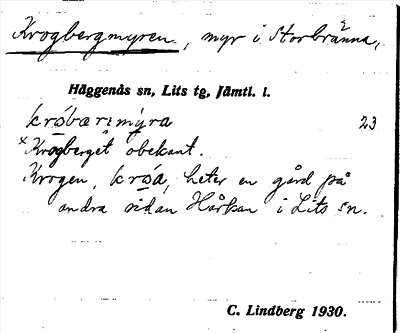 Krogbergmyren, myr i Storbränna,
Häggenås sn, Lits tg, Jämtl. l.
krósbarsmýra 23
*Krogberget obekant.
Krogen, krosa, heter en gård på
andra sidan Hårkan i Lits sn.
C. Lindberg 1930.